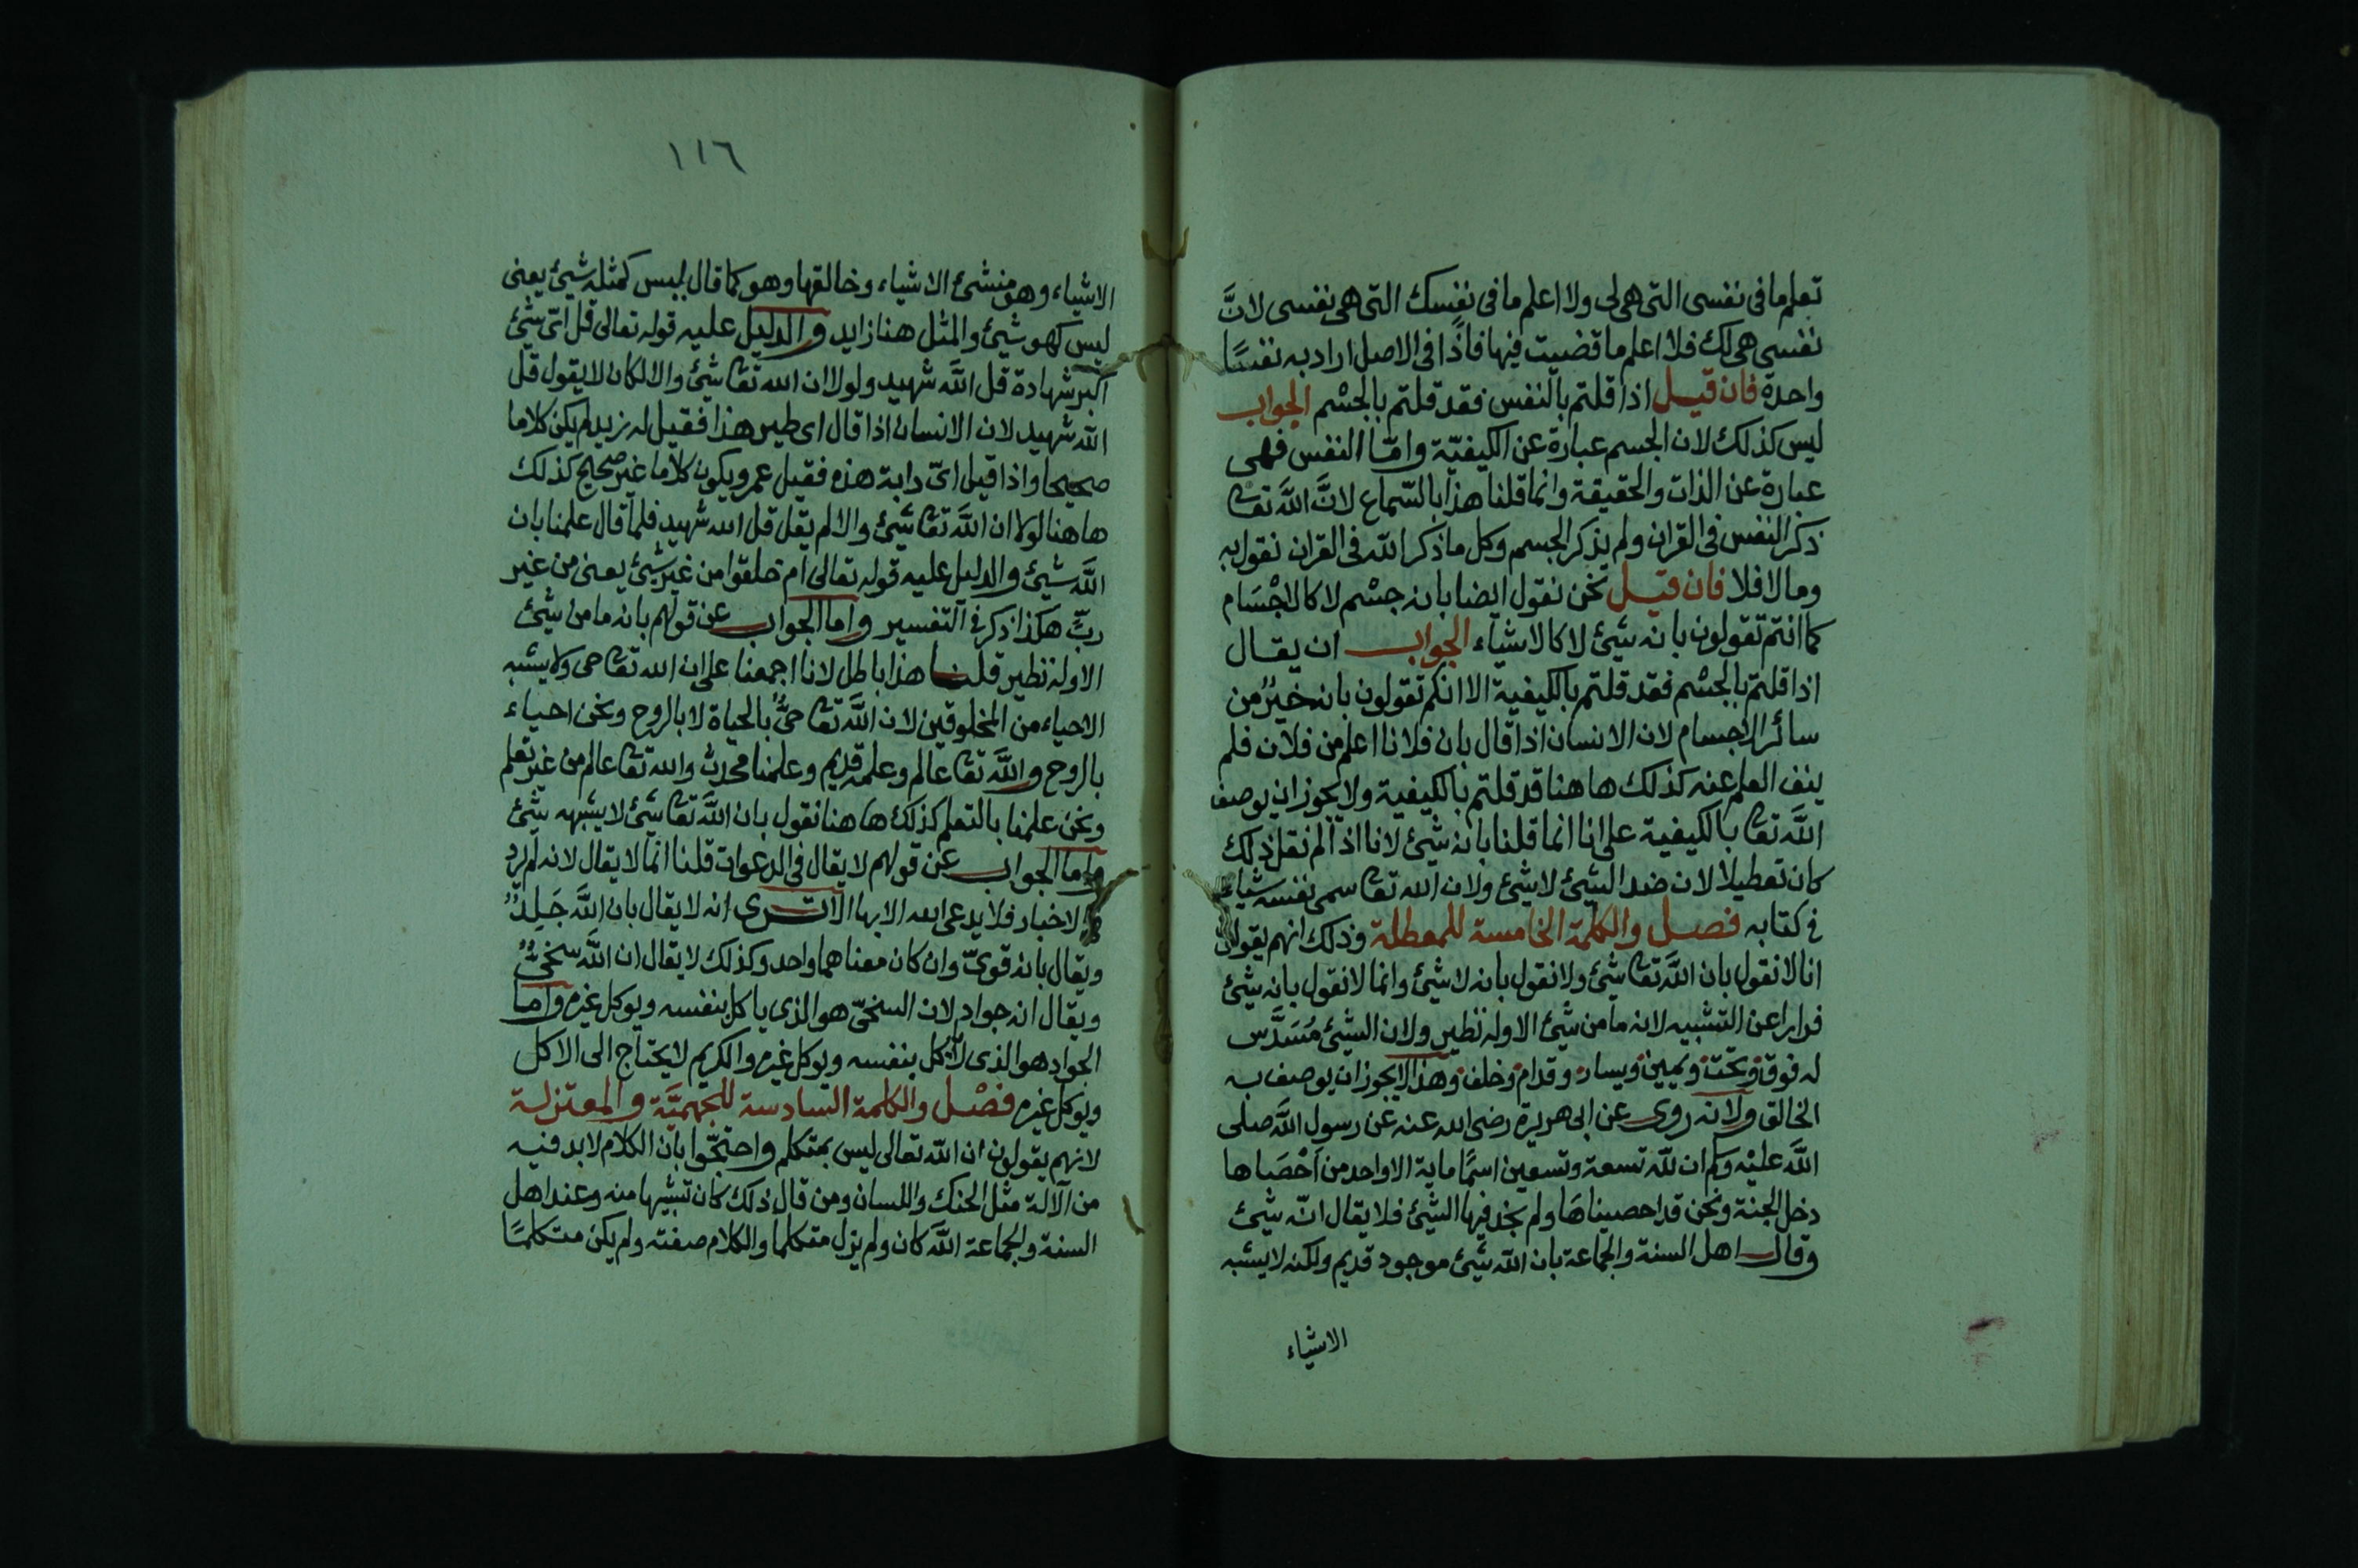 تعلم ما فى نفسى التى هى لى ولا اعلم ما فى نفسك التى هى نفسى لانَّ
نفسى هى لك فلا اعلم ما قضيت فيها فاذًا فى الاصل اراد به نفسًا
واحدة فان قيل اذا قلتم بالنفس فقد قلتم بالجسْم الجواب
ليس كذلك لان الجسم عبارة عن الكيفيّة وامّا النفس فهى
عبارة عن الذات والحقيقة وانما قلنا هذا بالسّماع لانَّ اللَّه تعا
ذكر النفس فى القران ولم يذكر الجسم وكل ما ذكر اللّه فى القران نقول به
وما لا فلا فان قيل نحن نقول ايضا بانه جسْم لا كالاجْسَام
كما انتم تقولون بانه شيئ لا كالاشياء الجواب ان يقال
اذا قلتم بالجسْم فقد قلتم بالكيفية الا انكم تقولون بانه خيرٌ من
سائر الاجسام لان الانسان اذا قال بان فلانا اعلم من فلان فلم
ينف العلم عنه كذلك ها هنا قد قلتم بالكيفية ولا يجوز ان يوصف
اللَّه تعا بالكيفية على انا انما قلنا بانه شيئ لانا اذا لم نقل ذلك
كان تعطيلا لان ضد الشيئ لا شيئ ولان اللّه تعا سمى نفسه شياء
فى كتابه فصل والكلمة الخامسة للمعطلة وذلك انهم يقولون
انا لا نقول بان اللَّه تعا شيئ ولا نقول بانه لا شيئ وانما لا نقول بانه شيئ
فرارا عن التشبيه لانه ما من شيئ الا وله نظير ولان الشيئ مُسَدَّس
له فوق وتحت ويمين ويسار وقدام وخلف وهذا لا يجوز ان يوصف به
الخالق ولانه روى عن ابى هريرة رضى الله عنه عن رسول اللَّه صلى
اللَّه عليْه وسلم ان للّه تسعة وتسعين اسمًا ماية الا واحد من اَحْصَاها
دخل الجنة ونحن قد احصيناهَا ولم نجد فيها الشيئ فلا يقال انّه شيئ
وقال اهل السنة والجماعة بان اللّه شيئ موجود قديم ولكنه لا يشبه
الاشياء
١١٦
الاشياء وهو منشئ الاشياء وخالقها وهو كما قال ليس كمثله شيئ يعنى
ليس كهو شيئ والمثل هنا زايد والدليل عليه قوله تعالى قل اىّ شيئ
اكبر شهادة قل اللَّه شهيد ولولا ان الله تعا شيئ والا لكان لا يقول قل
اللّه شهيد لان الانسان اذا قال اى طير هذا فقيل له زيد لم يكن كلاما
صحيحا واذا قيل اىّ دابة هذه فقيل عمرو يكون كلاما غير صحيح كذلك
ها هنا لولا ان اللَّه تعا شيئ والا لم يقل قل الله شهيد فلما قال علمنا بان
اللَّه شيئ والدليل عليه قوله تعالى ام خلقوا من غير شيئ يعنى من غير
ربّ هكذا ذكر فى التفسير واما الجواب عن قولهم بانه ما من شيئ
الا وله نظير قلنا هذا باطل لانا اجمعنا على ان الله تعا حى ولا يشبه
الاحياء من المخلوقين لان اللَّه تعا حىٌّ بالحياة لا بالروح ونحن احياء
بالروح واللَّه تعا عالم وعلمه قديم وعلمنا محدث والله تعا عالم من غير تعلم
ونحن علمنا بالتعلم كذلك ها هنا نقول بان اللَّه تعا شيئ لا يشبهه شيئ
واما الجواب عن قولهم لا يقال فى الدعوات قلنا انما لا يقال لانه لم يرد
به الاخبار فلا يدعى الله الا بها الا ترى انه لا يقال بان اللَّه جَلِدٌ
ويقال بانه قوىّ وان كان معناهما واحد وكذلك لا يقال ان اللَّه سخىٌّ
ويقال انه جواد لان السخىّ هو الذى ياكل بنفسه ويوكل غيره واما
الجواد هو الذى لا ياكل بنفسه ويوكل غيره والكريم لا يحتاج الى الاكل
ويوكل غيره فصْل والكلمة السادسة للجهميَّة والمعتزلة
لانهم يقولون ان اللّه تعالى ليس بمتكلم واحتجّوا بان الكلام لا بد فيه
من الآلة مثل الحنك واللسان ومن قال ذلك كان تشبيها منه وعند اهل
السنة والجماعة اللَّه كان ولم يزل متكلما والكلام صفته ولم يكن متكلمًا